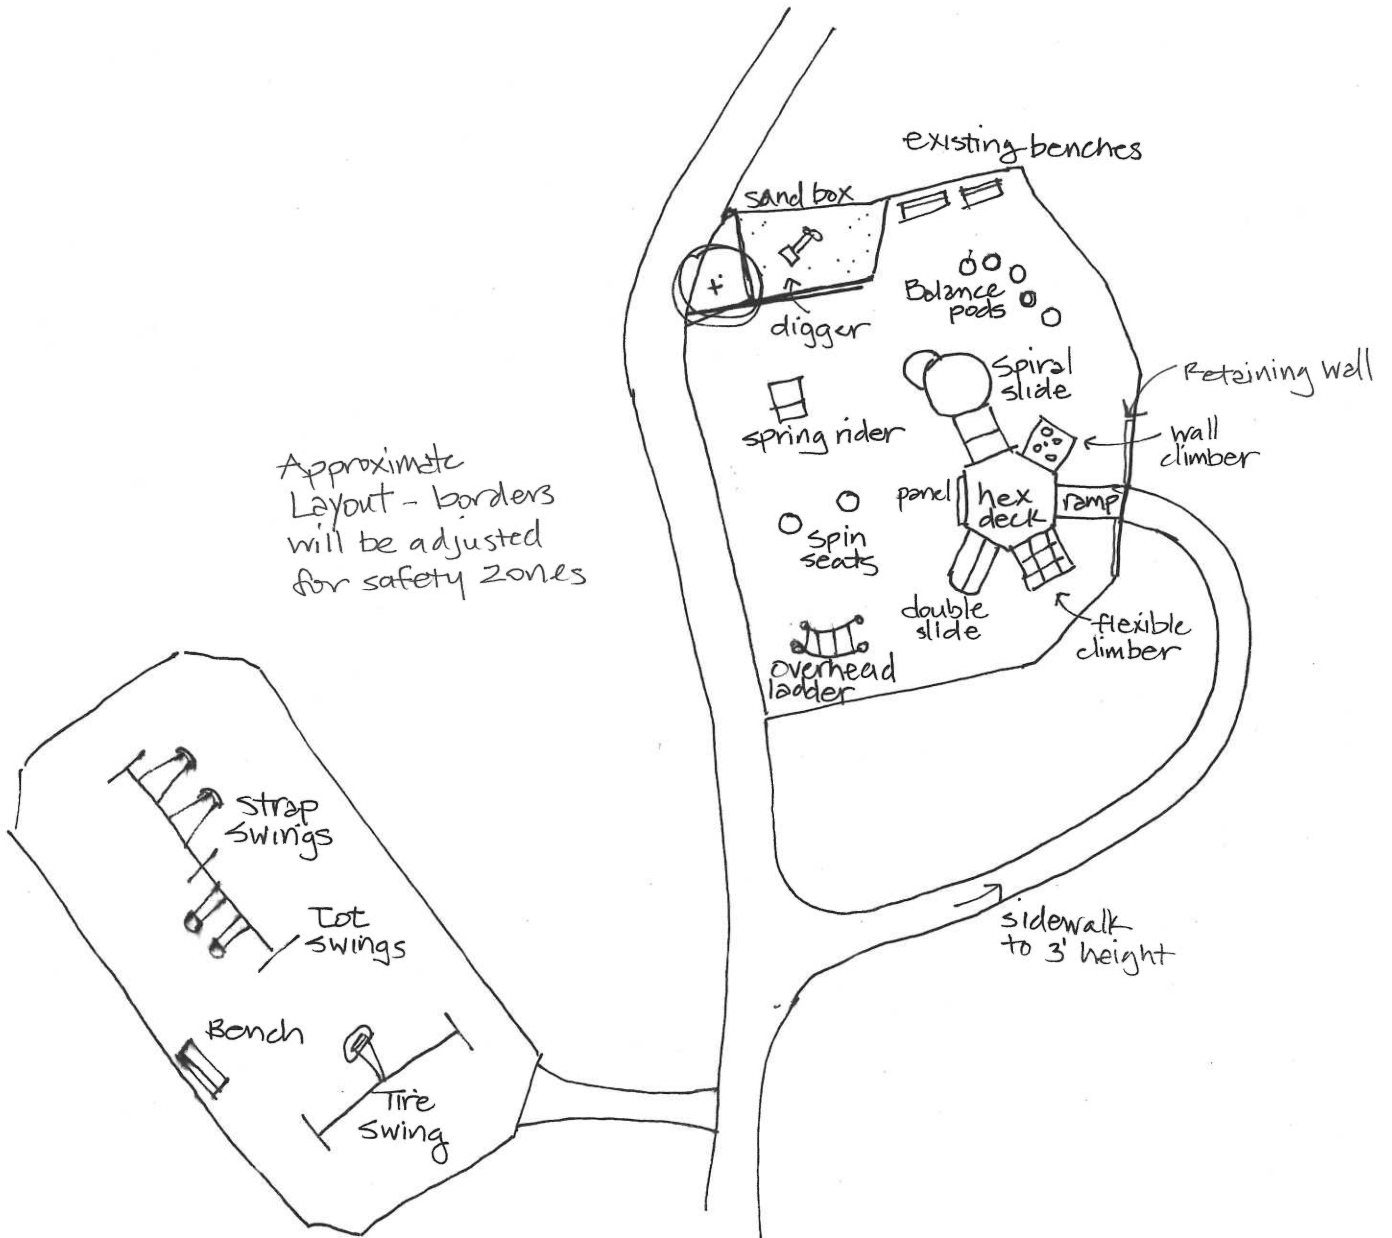 existing benches
sand box
digger
Balance
pods
Spiral
slide
Retaining wall
wall
climber
spring rider
panel
hex
deck
ramp
spin
seats
double
slide
flexible
climber
overhead
ladder
Approximate
Layout - borders
will be adjusted
for safety zones
strap
swings
Tot
swings
Bench
Tire
swing
sidewalk
to 3' height